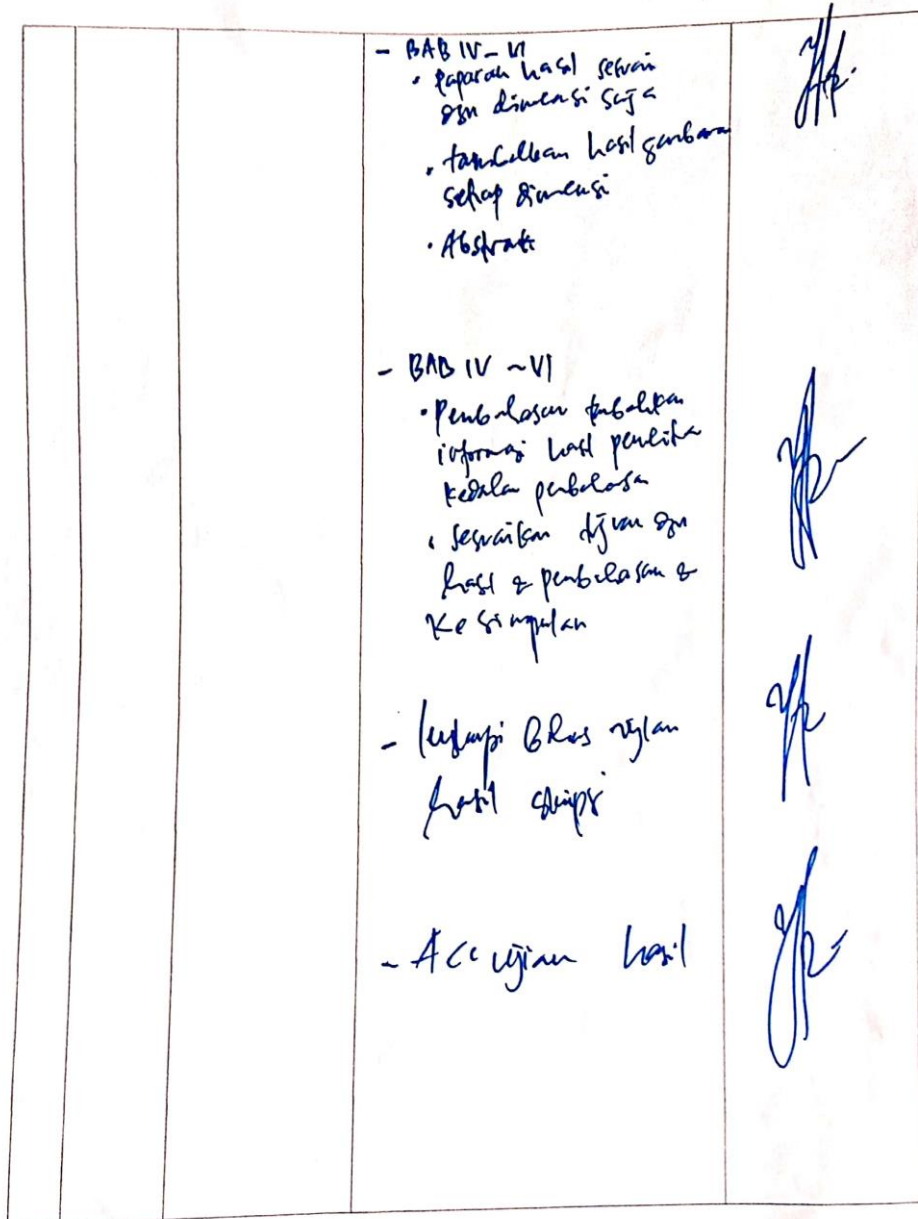 - BAB IV - VI
• Paparan hasil sesuai
dgn dimensi saja
• tambahkan hasil gambaran
setiap dimensi
• Abstrak
- BAB IV ~ VI
• Pembahasan tambahkan
informasi hasil penelitia
kedalam pembahasan
• sesuaikan tujuan dgn
hasil & pembahasan &
Kesimpulan
- lengkapi Berkas ujian
hasil skripsi
- ACC ujian hasil